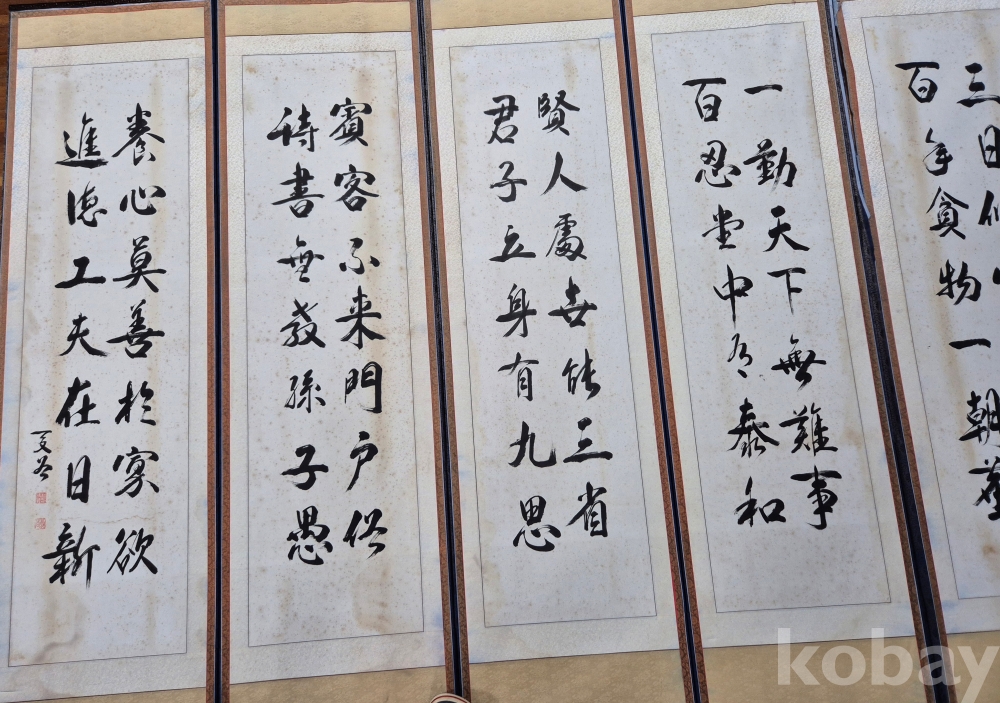 三日
百年貪物一朝塵
一勤天下無難事
百忍堂中有泰和
賢人處世能三省
君子立身有九思
賓客不来門户俗
詩書無教孫子愚
養心莫善於寡欲
進德工夫在日新
kobay